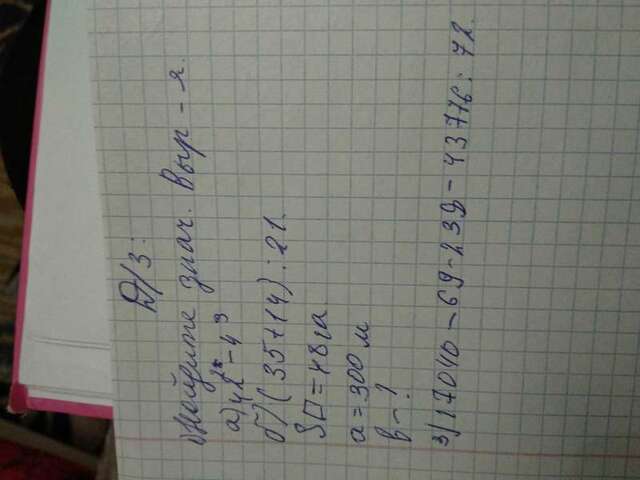 Д/З:
1) Найдите знач. Выр-я.
а) 42² - 4³
б) (35+14) : 21.
S▭ = 48 га
а = 300 м
в - ?
3) 17040 - 69 · 239 - 43776 : 72.